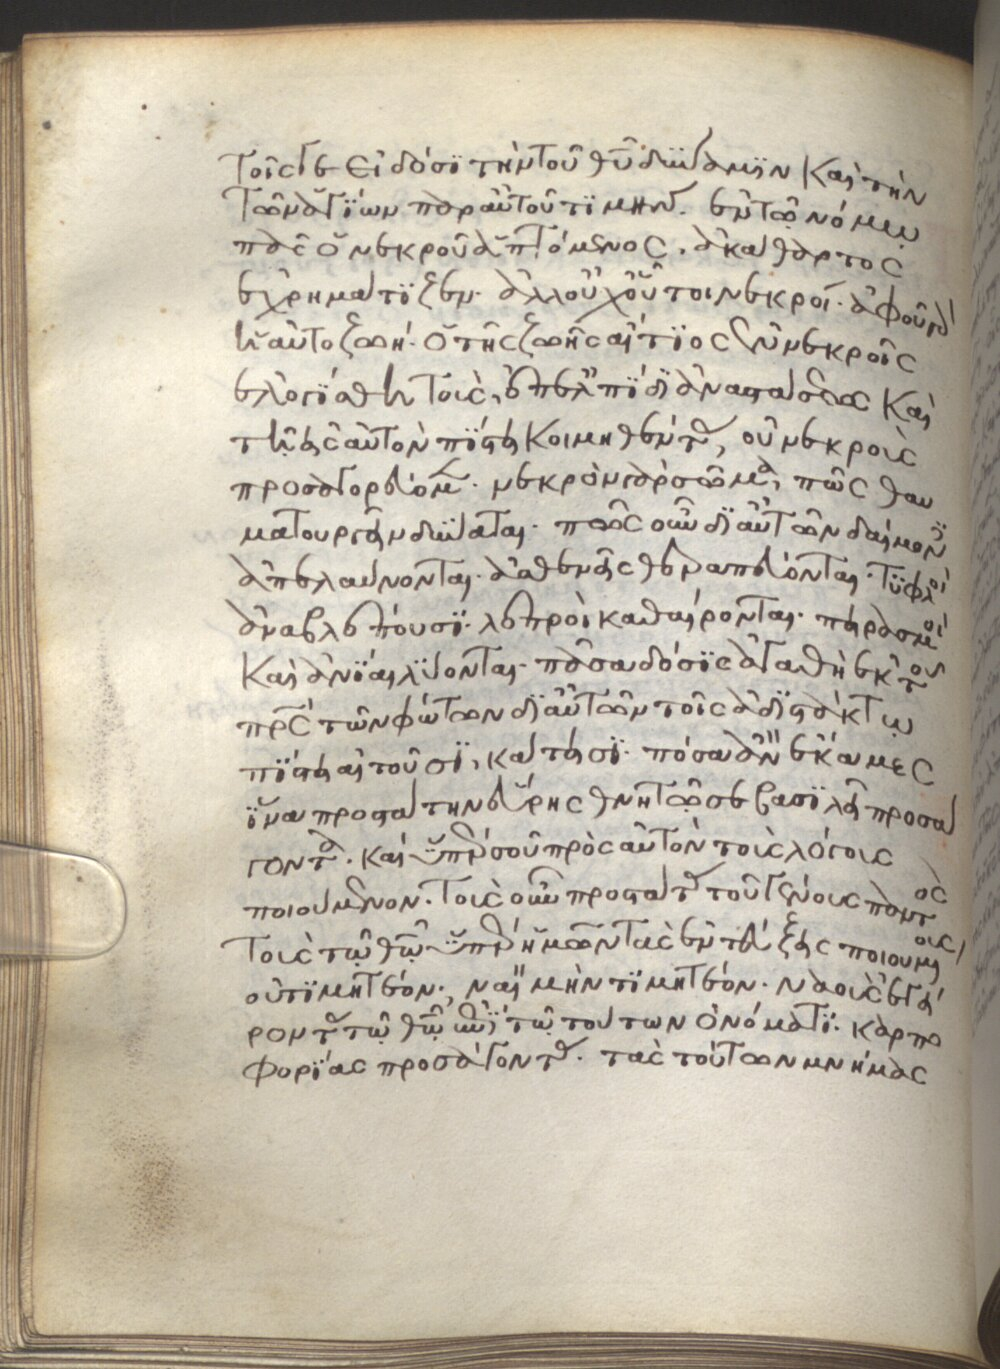 τοῖς γε εἰδόσι τὴν τοῦ θυ δύναμϊν καὶ τὴν
τῶν ἁγΐων παρ' αὐτοῦ τϊμήν. ἐν τῷ νόμῳ
πᾶς ὁ νεκροῦ ἁπτόμενος, ἀκάθαρτος
ἐχρημάτϊζεν. ἀλλ' οὐχ οὗτοι νεκροί. ἀφ' οὗ γὰρ
ἡ αὐτοζωή. ὁ τῆς ζωῆς αἴτϊος ἐν νεκροῖς
ἐλογΐσθη, τοὺς, ἐπ' ἐλπΐδϊ ἀναστάσεως καὶ
τῆ εἰς αὐτὸν πΐστει κοιμηθέντας, οὐ νεκροὺς
προσαγορεύομεν. νεκρὸν γὰρ σῶμα, πῶς θαυ
ματουργεῖν δύναται. πῶς οὖν δϊ' αὐτῶν δαίμονες
ἀπελαύνονται. ἀσθενεῖς θεραπεύονται. τϋφλοὶ
ἀναβλέπουσϊ. λεπροὶ καθαίρονται. πειρασμοὶ
καὶ ἀνΐαι λϋονται. πᾶσα δόσϊς ἀγαθὴ ἐκ τοῦ
πρς τῶν φώτων δϊ' αὐτῶν τοῖς ἀδϊστάκτῳ
πΐστει αἰτοῦσϊ, κάτησϊ. πόσα ἂν ἔκαμες
ἵνα προστάτην εὕρης θνητῷ σε βασϊλεῖ προσά
γοντα. καὶ ὑπὲρ σοῦ πρὸς αὐτὸν τοὺς λόγους
ποιούμενον. τοὺς οὖν προστάτας τοῦ γένους παντὸς
τοὺς τῷ θῷ ὑπὲρ ἡμῶν τὰς ἐντεύξεις ποιουμένους,
οὐ τϊμητέον; ναὶ μὴν τϊμητέον. ναοὺς ἐγεί
ροντας τῷ θῷ ἐπῒ τῷ τούτων ὀνόματϊ. καρπο
φορΐας προσάγοντας. τὰς τούτων μνήμας